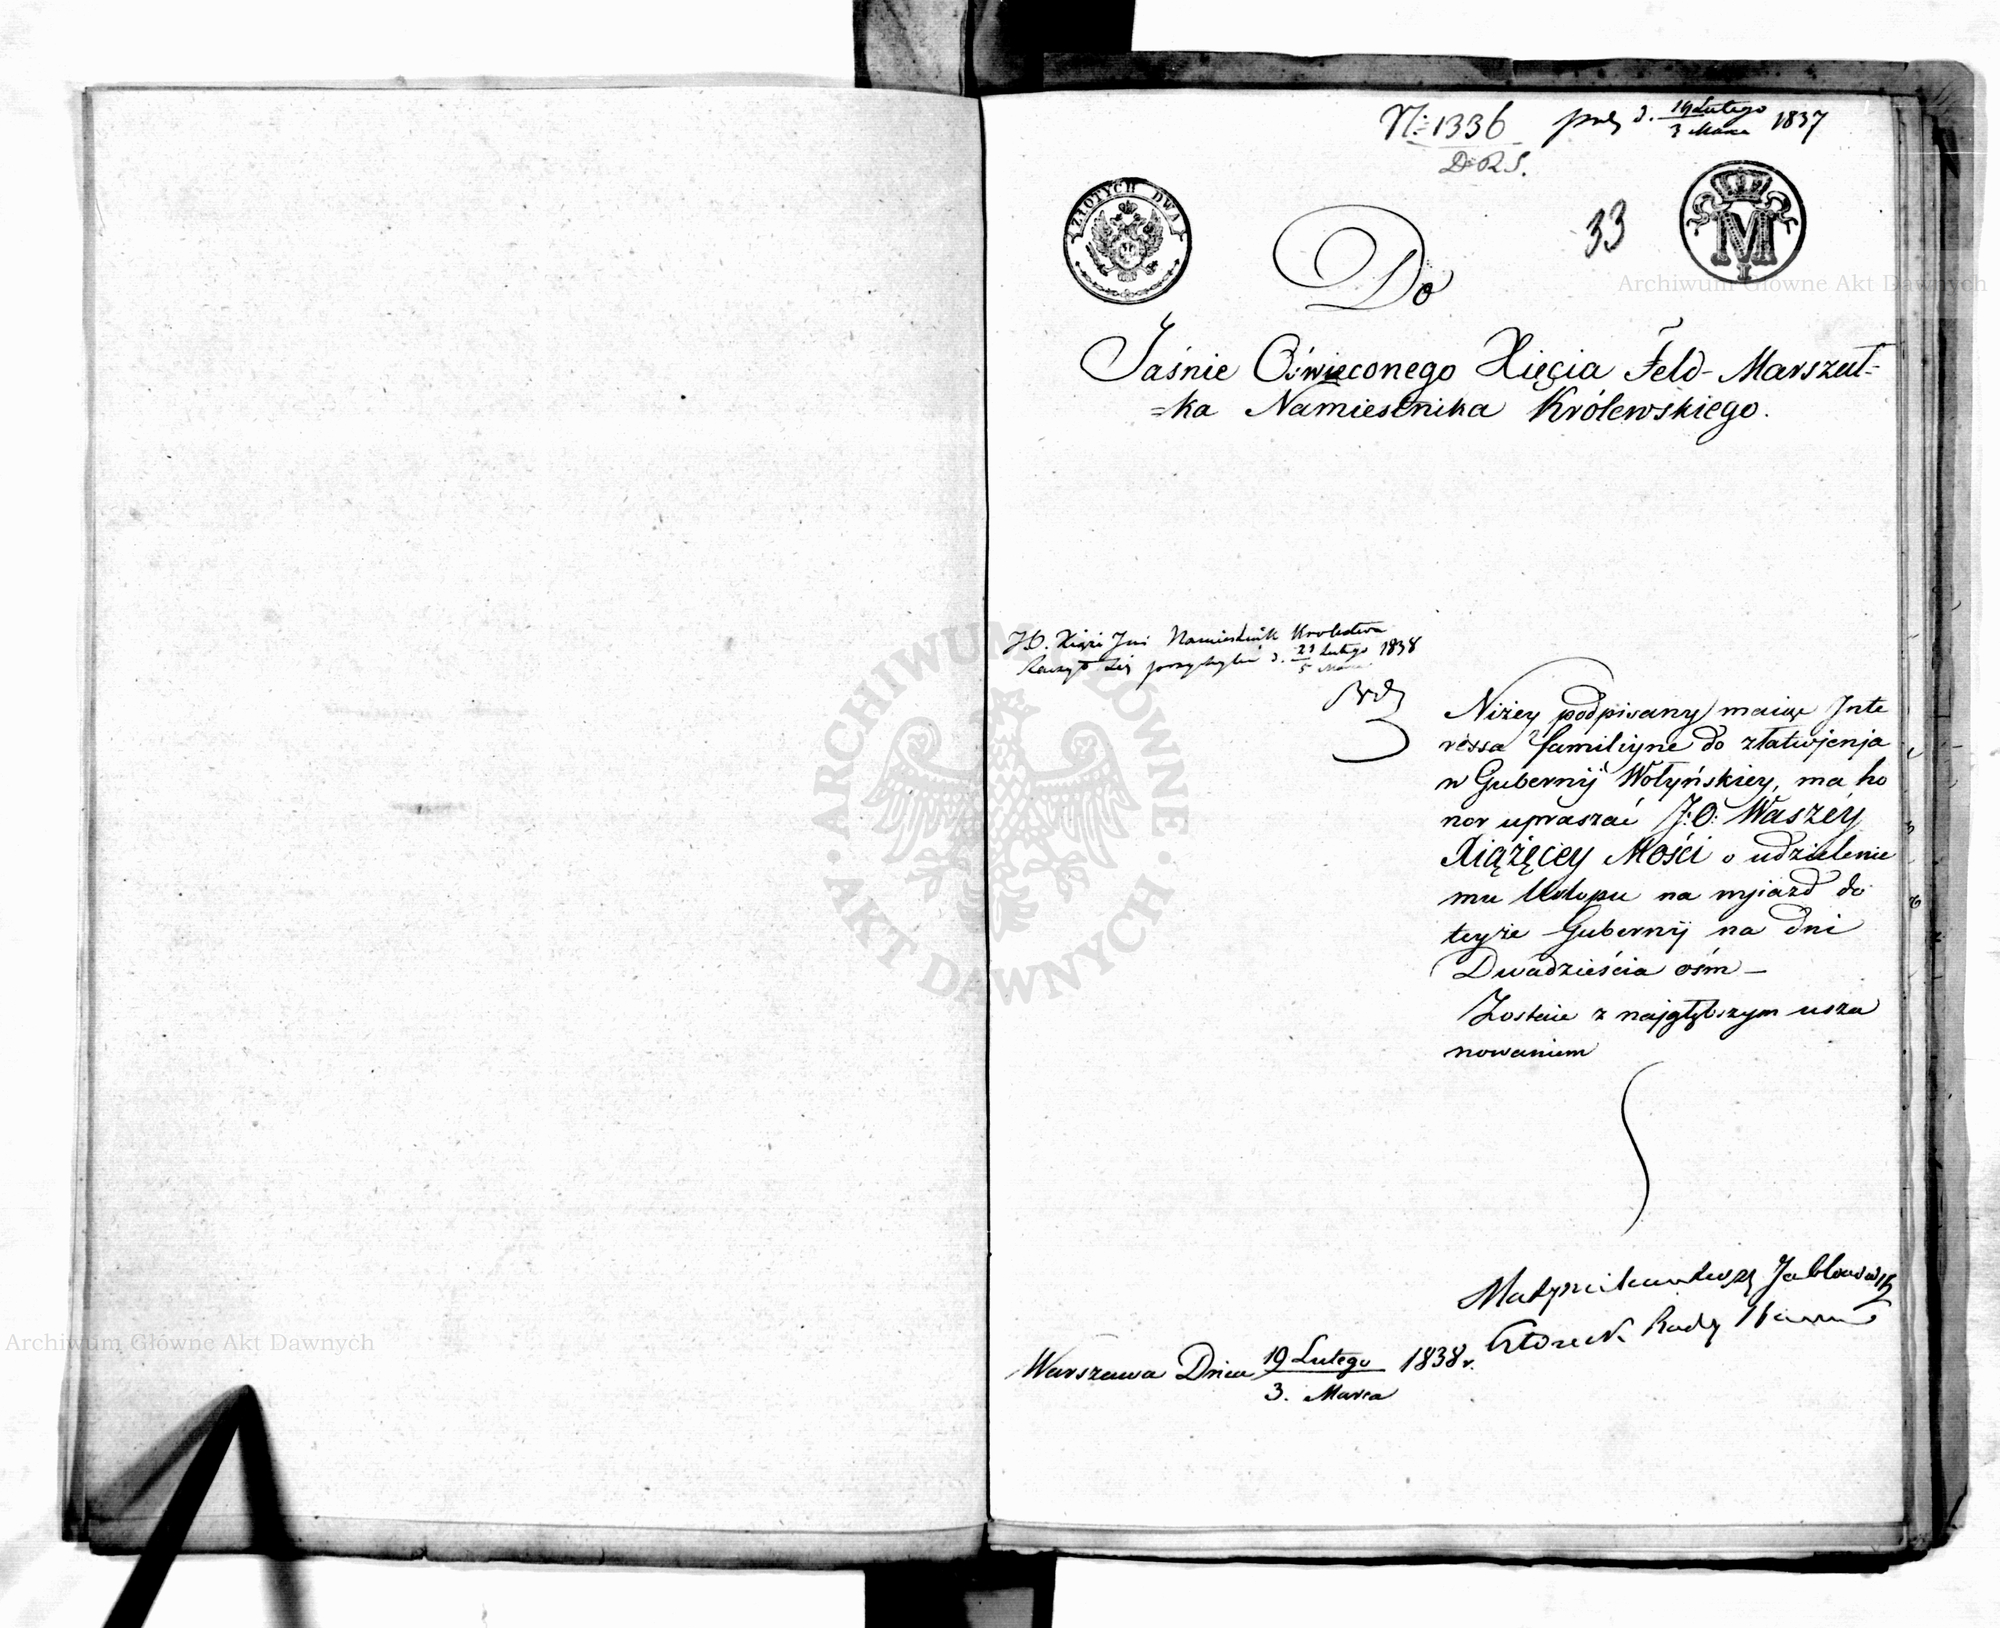 N: 1336 d. 19 Lutego / 3 Marca 1837
D.R.S.
ZŁOTYCH DWA
33
M
I
Do
Jaśnie Oświeconego Xięcia Feld-Marszał=
=ka Namiestnika Królewskiego.
J.O. Namiestnik Królestwa
raczył się przychylić d. 21 Lutego / 5 Marca 1838
Niżey podpisany maiąc Inte
ressa familijne do złatwjenja
w Gubernij Wołyńskiey, ma ho
nor upraszać J:O: Waszéy
Xiążęcey Mości o udzielenie
mu Urlopu na wjiazd do
teyże Gubernij na dni
Dwadzieścia ośm –
Zostaie z najgłębszym usza
nowaniem
Jabłonowski
Rady Stanu
Warszawa Dnia 19 Lutego / 3. Marca 1838 r.
Archiwum Główne Akt Dawnych
Archiwum Główne Akt Dawnych
ARCHIWUM GŁÓWNE
AKT DAWNYCH